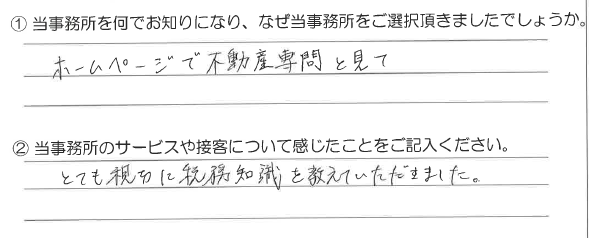 ① 当事務所を何でお知りになり、なぜ当事務所をご選択頂きましたでしょうか。
ホームページで不動産専問と見て
② 当事務所のサービスや接客について感じたことをご記入ください。
とても親切に税務知識を教えていただきました。